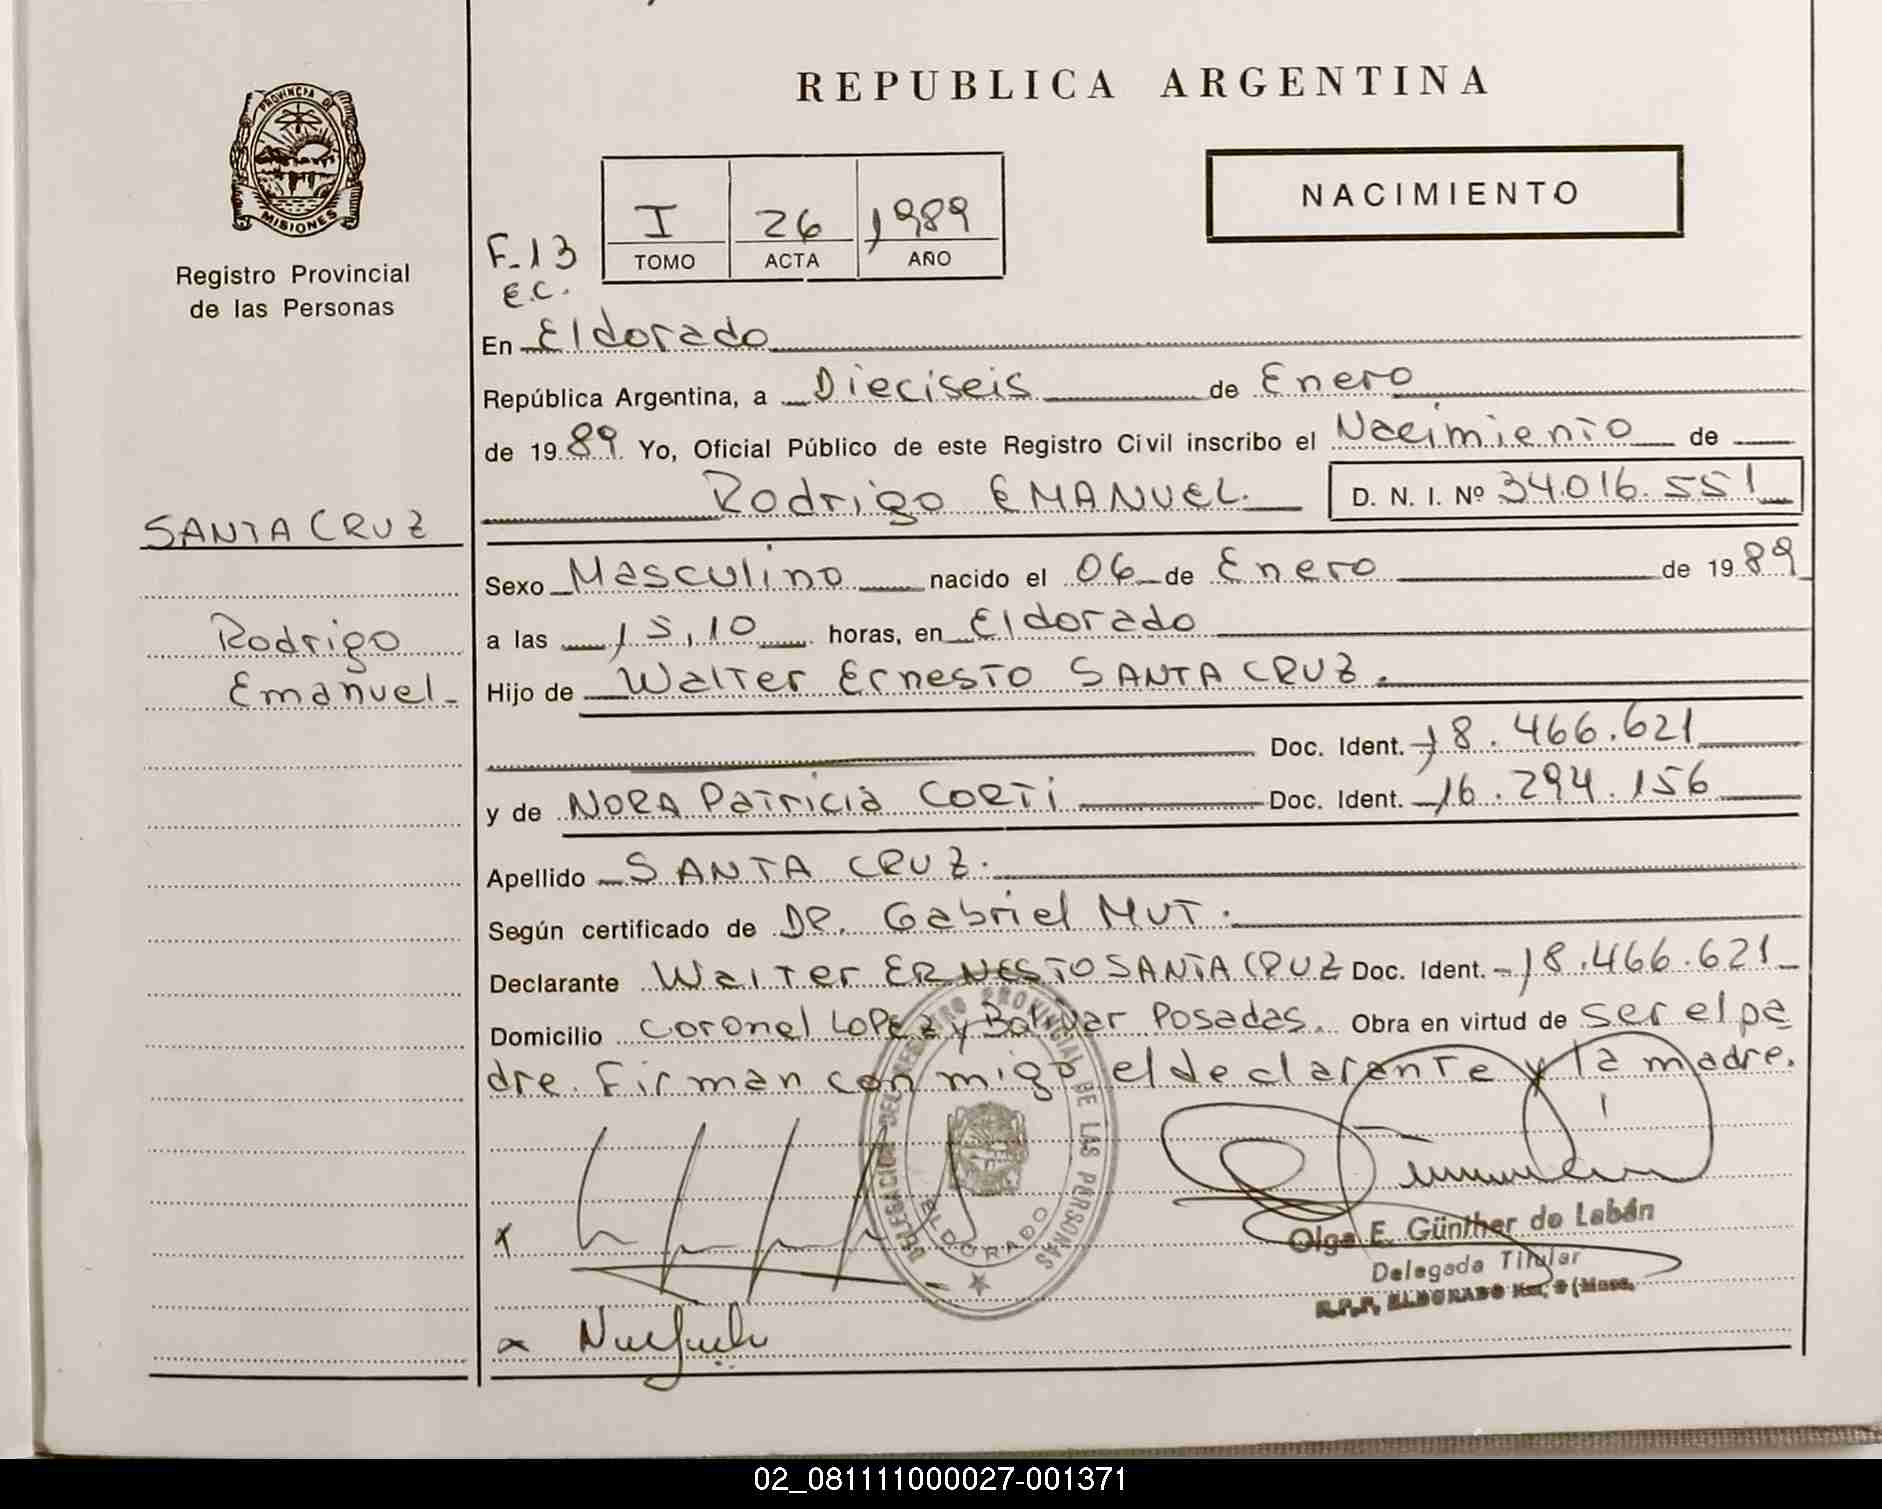 REPUBLICA ARGENTINA
PROVINCIA DE
MISIONES
Registro Provincial
de las Personas
NACIMIENTO
F-13
E.C.
I 26 1989
TOMO ACTA AÑO
En Eldorado
República Argentina, a Dieciseis de Enero
de 1989 Yo, Oficial Público de este Registro Civil inscribo el Nacimiento de
Rodrigo EMANUEL. D. N. I. Nº 34.016.551
SANTA CRUZ
Rodrigo
Emanuel-
Sexo Masculino nacido el 06 de Enero de 1989
a las 15,10 horas, en Eldorado
Hijo de Walter Ernesto SANTA CRUZ.
Doc. Ident. 18.466.621
y de NORA Patricia CORTi Doc. Ident. 16.294.156
Apellido SANTA CRUZ.
Según certificado de DR. Gabriel MUT.
Declarante Walter ERNESTO SANTA CRUZ Doc. Ident. 18.466.621
Domicilio Coronel LOPEZ y Bolivar Posadas. Obra en virtud de ser el pa
dre. Firman con migo el declarante y la madre.
DELEGACION DEL REGISTRO PROVINCIAL DE LAS PERSONAS
ELDORADO
Olga E. Günther de Labán
Delegada Titular
R.P.P. ELDORADO Km. 9 (Mnes.
02_081111000027-001371